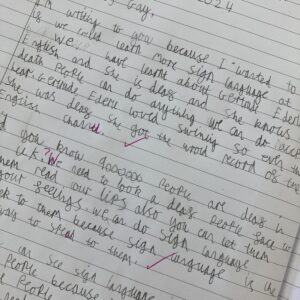 2024
Gay,
I'm writing to you because I wanted to
if we could learn more sign language at
We have learnt about Gertrude Ederle
English and she is deaf and she knows
death People can do anything we can do except
hear. Gertrude Ederle loved swiming so even tho
she was deaf she got the world record of the
English channel
you know 900000 People are deaf in
U.K. We need to look a deaf people face so
them read our lips also you can let them
your feelings we can do sign language
to them because sign language is the
way to to them.
can see sign language
People because
People